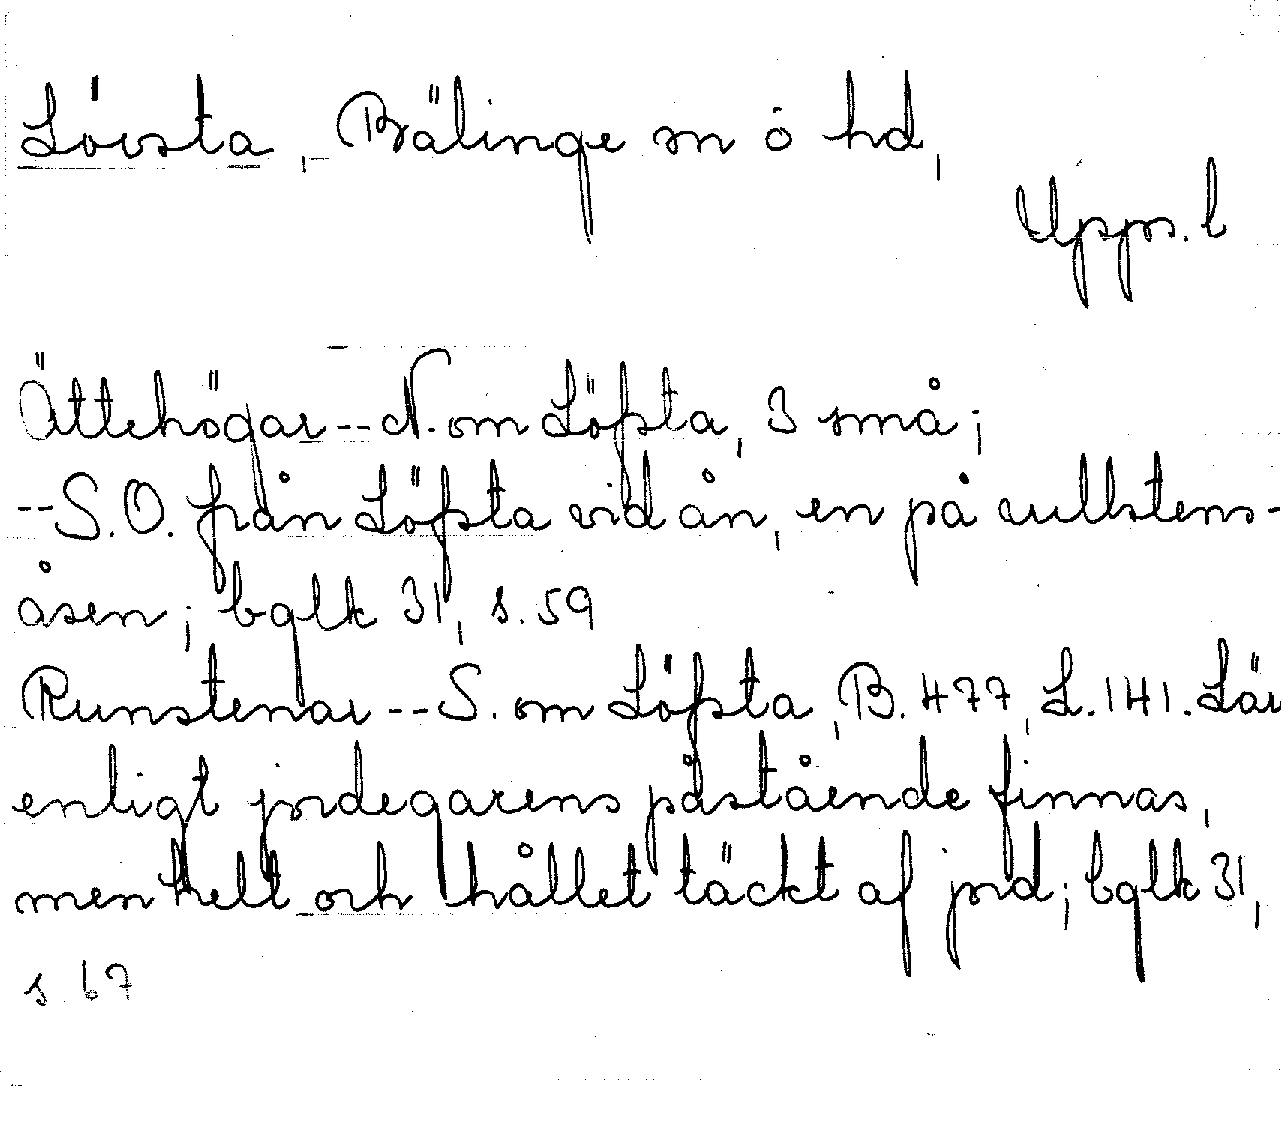 Lövsta, Bälinge sn o hd,
Upps. l
Ättehögar -- N. om Löfsta, 3 små;
-- S.O. från Löfsta vid ån, en på rullstens-
åsen; bglk 31, s. 59
Runstenar -- S. om Löfsta, B. 477, L. 141. Lär
enligt jordegarens påstående finnas,
men helt och hållet täckt af jord; bglk 31,
s. 67